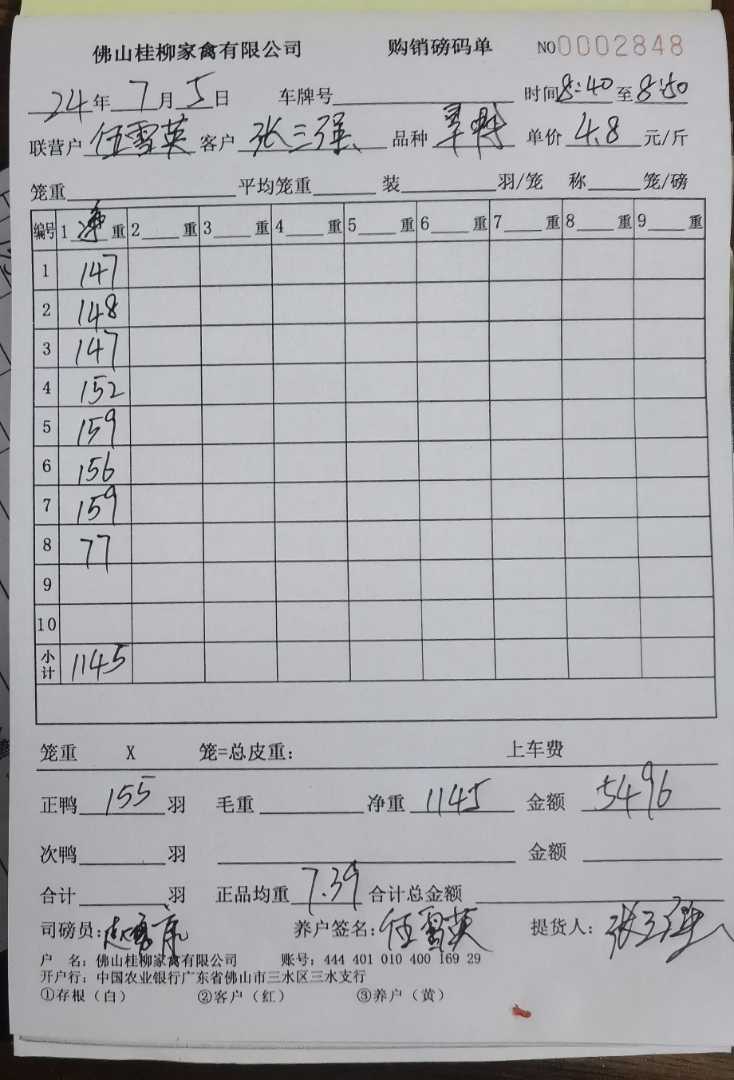 佛山桂柳家禽有限公司 购销磅码单 NO0002848
24年7月5日 车牌号 时间8:40至8:50
联营户 伍雪英 客户 张三强 品种 单价 4.8 元/斤
笼重 平均笼重 装 羽/笼 称 笼/磅
编号 1 净 重 2 重 3 重 4 重 5 重 6 重 7 重 8 重 9 重
1 147
2 148
3 147
4 152
5 159
6 156
7 159
8 77
9
10
小计 1145
笼重 X 笼=总皮重: 上车费
正鸭 155 羽 毛重 净重 1145 金额 5496
次鸭 羽 金额
合计 羽 正品均重 7.39 合计总金额
司磅员: 养户签名: 伍雪英 提货人: 张三强
户 名: 佛山桂柳家禽有限公司 账号: 444 401 010 400 169 29
开户行: 中国农业银行广东省佛山市三水区三水支行
①存根(白) ②客户(红) ③养户(黄)